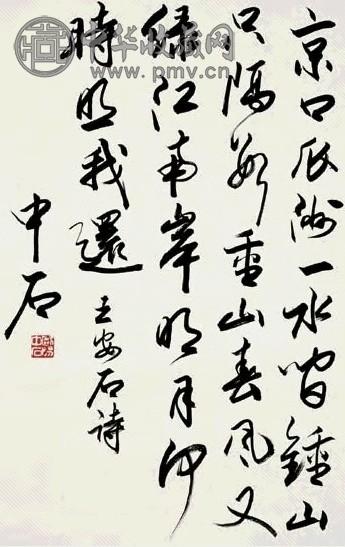 京口瓜洲一水間鍾山
只隔數重山春風又
綠江南岸明月何
時照我還 王安石詩
中石
中华收藏网
www.pmv.cn